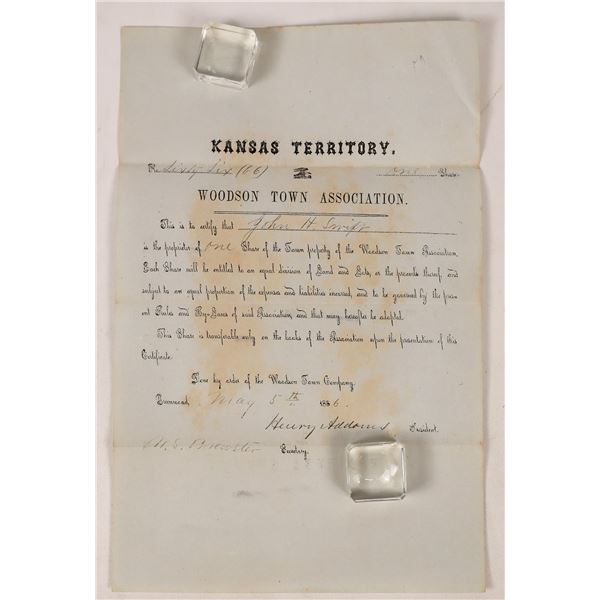 KANSAS TERRITORY.
No Sixty Six (66) one Share
WOODSON TOWN ASSOCIATION.
This is to certify that John H. Swift
is the proprietor of one Share of the Town property of the Woodson Town Association.
Each Share will be entitled to an equal division of Land and Lots, or the proceeds thereof, and
subject to an equal proportion of the expenses and liabilities incurred, and to be governed by the pres-
ent Rules and By-Laws of said Association, and that may hereafter be adopted.
This Share is transferable only on the books of the Association upon the presentation of this
Certificate.
Done by order of the Woodson Town Company.
May 5th 1856.
Henry Addoms President.
Brewster Secretary.